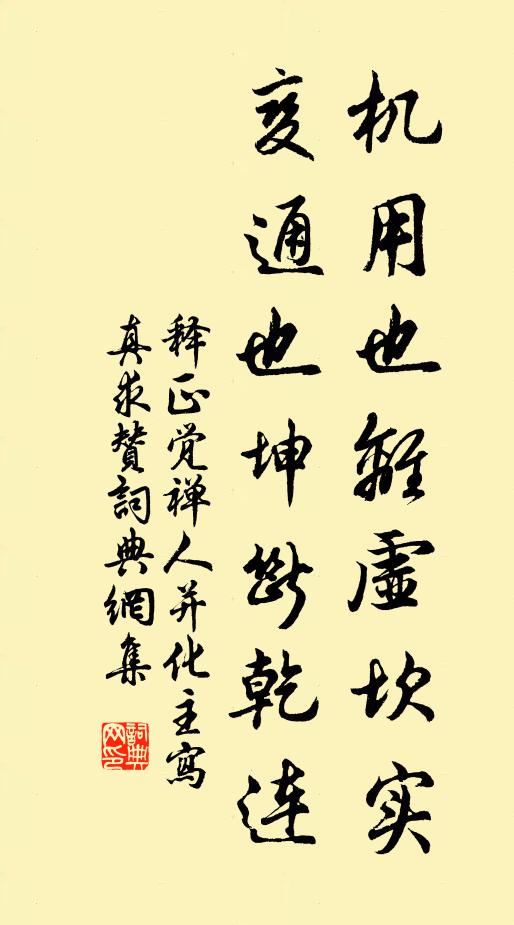 机用也離虚坎实
变通也坤断乾连
释正觉禅人并化主写
真求赞词典网集
詞典网印